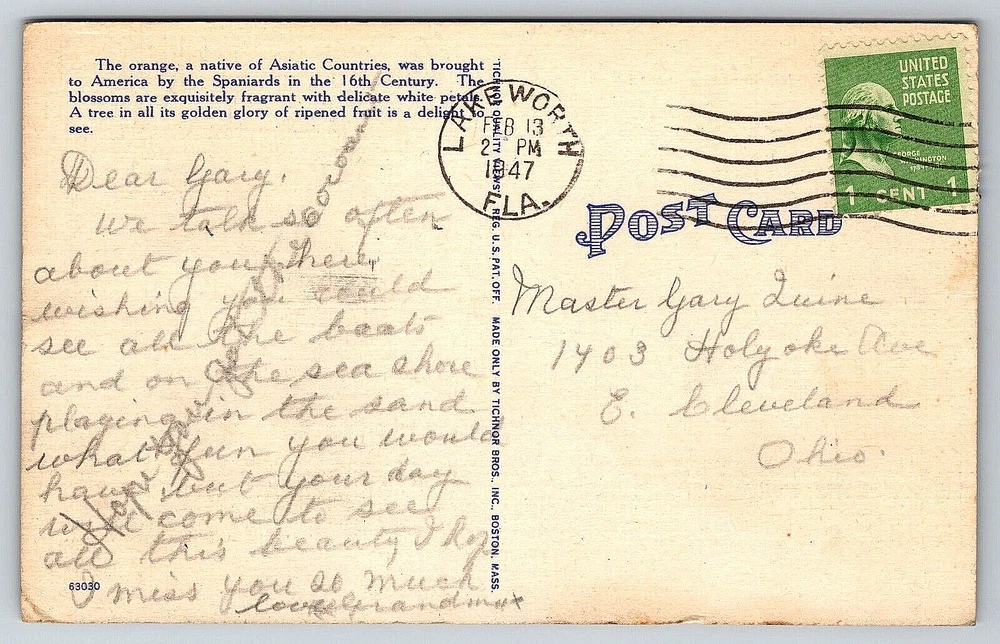 The orange, a native of Asiatic Countries, was brought
to America by the Spaniards in the 16th Century. The
blossoms are exquisitely fragrant with delicate white petals.
A tree in all its golden glory of ripened fruit is a delight to
see.
Dear Gary.
We talk so often
about you there
wishing you could
see all the boats
and on the sea shore
playing in the sand
what fun you would
have but your day
will come to see
all this beauty I hop
I miss you so much
love Grandma
Hope you
63030
TICHNOR QUALITY VIEWS REG. U.S. PAT. OFF. MADE ONLY BY TICHNOR BROS., INC., BOSTON, MASS.
LAKE WORTH
FEB 13
2 PM
1947
FLA.
UNITED
STATES
POSTAGE
GEORGE
WASHINGTON
1 CENT 1
POST CARD
Master Gary Quine
1403 Holyoke Ave
E. Cleveland
Ohio.